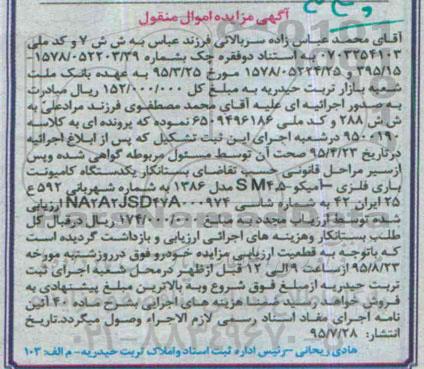 آگهی مزایده اموال منقول
آقای محمد عباس زاده سربالائی فرزند عباس به ش ش ۷ و کد ملی
۰۷۰۳۲۵۴۱۲۳ به استناد دوفقره چک بشماره ۱۵۷۸/۰۵۲۲۰۳/۳۹-
۳۹۵/۱۵ و ۱۵۷۸/۰۵۲۲۴/۲۵ مورخ ۹۵/۳/۲۵ به عهده بانک ملت
شعبه بازار تربت حیدریه به مبلغ کل ۱۵۲/۰۰۰/۰۰۰ ریال مبادرت
به صدور اجرائیه ای علیه آقای محمد مصطفوی فرزند مرادعلی به
ش ش ۲۸۸ و کد ملی ۶۵۰۹۴۹۶۱۸۶ نموده که پرونده ای به کلاسه
۹۵۰۰۱۹۰ درشعبه اجرای این ثبت تشکیل که پس از ابلاغ اجرائیه
درتاریخ ۹۵/۴/۲۳ صحت آن توسط مسئول مربوطه گواهی شده وپس
ازسیر مراحل قانونی حسب تقاضای بستانکار یکدستگاه کامیونت
باری فلزی – آمیکو – S M۴٫۵ مدل ۱۳۸۶ به شماره شهربانی ۵۹۲ ع
۲۵ ایران ۴۲ به شماره شاسی NA۲A۲JSD۲۷A۰۰۰۹۷۴ ارزیابی
شده توسط ارزیاب مجدد به مبلغ ۱۷۴/۰۰۰/۰۰۰ ریال درقبال کل
طلب بستانکار وهزینه های اجرائی ارزیابی و بازداشت گردیده است
که باتوجه به قطعیت ارزیابی مزایده خودرو فوق درروزشنبه مورخه
۹۵/۸/۲۳ ازساعت ۹ الی ۱۲ قبل ازظهر درمحل شعبه اجرای ثبت
تربت حیدریه ازمبلغ فوق شروع وبه بالاترین مبلغ پیشنهادی به
فروش خواهد رسید ضمنا هزینه های اجرایی بشرح ماده ۴۰ آئین
نامه اجرای مفاد اسناد رسمی لازم الاجراء وصول میگردد.تاریخ
انتشار: ۹۵/۷/۲۸
هادی ریحانی –رئیس اداره ثبت اسناد واملاک تربت حیدریه- م الف: ۱۰۳